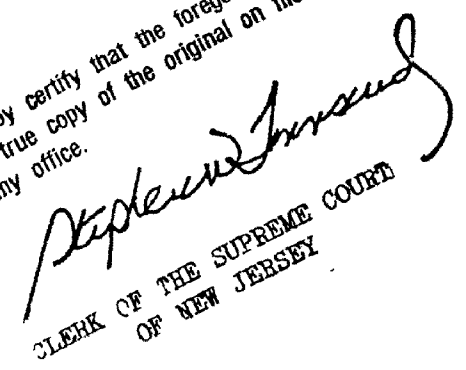 by certify that the forego
true copy of the original on file
my office.
Stephen W. Townsend
CLERK OF THE SUPREME COURT
OF NEW JERSEY